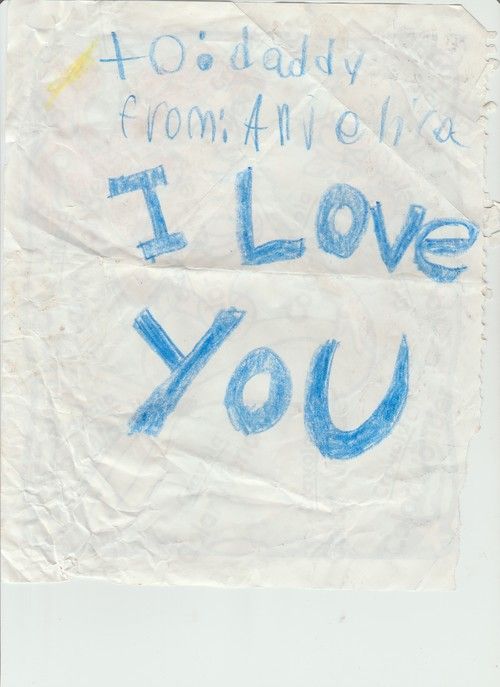 to: daddy
from: Anvelica
I Love
YOU